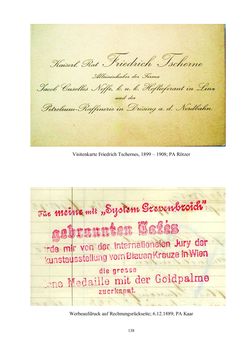 Kaiserl. Rat Friedrich Tscherne
Alleininhaber der Firma
Jacob Canellos Neffe, k. u. k. Hoflieferant in Linz
und der
Petroleum-Raffinerie in Drösing a. d. Nordbahn.
Visitenkarte Friedrich Tschernes, 1899 – 1908; PA Rinzer
Für meine mit „System Grevenbroich"
gebrannten Cafés
wurde mir von der Internationalen Jury der
kunstausstellung vom Blauen Kreuze in Wien
die grosse
ne Medaille mit der Goldpalme
zuerkannt.
Werbeaufdruck auf Rechnungsrückseite; 6.12.1889; PA Kaar
138